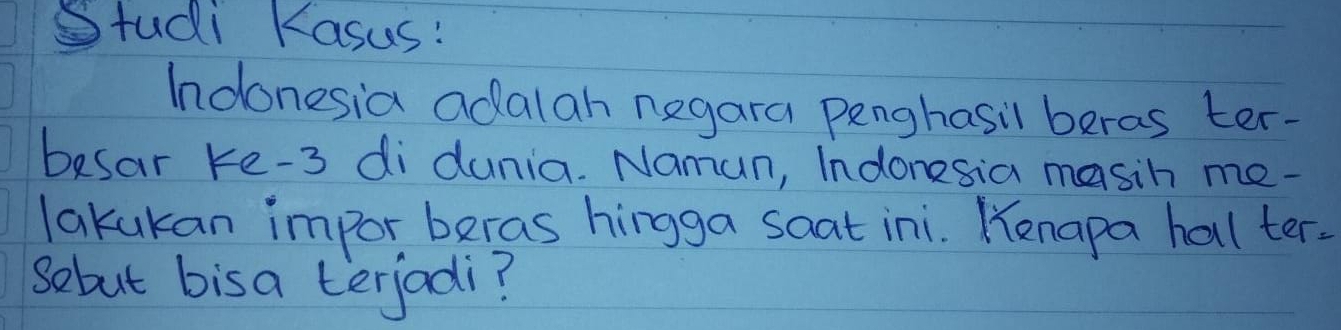 Studi Kasus:
Indonesia adalah negara penghasil beras ter-
besar ke-3 di dunia. Namun, Indonesia masih me-
lakukan impor beras hingga saat ini. Kenapa hal ter-
sebut bisa terjadi?